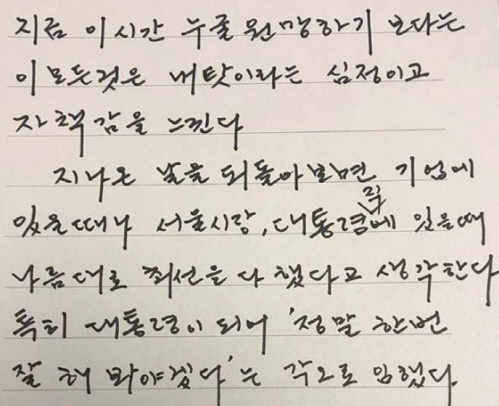 지금 이 시간 누굴 원망하기 보다는
이 모든것은 내탓이라는 심정이고
자책감을 느낀다
지나온 날을 되돌아보면 기업에
있을때나 서울시장, 대통령직에 있을때
나름대로 최선을 다 했다고 생각한다
특히 대통령이 되어 '정말 한번
잘 해 봐야겠다'는 각오로 임했다.